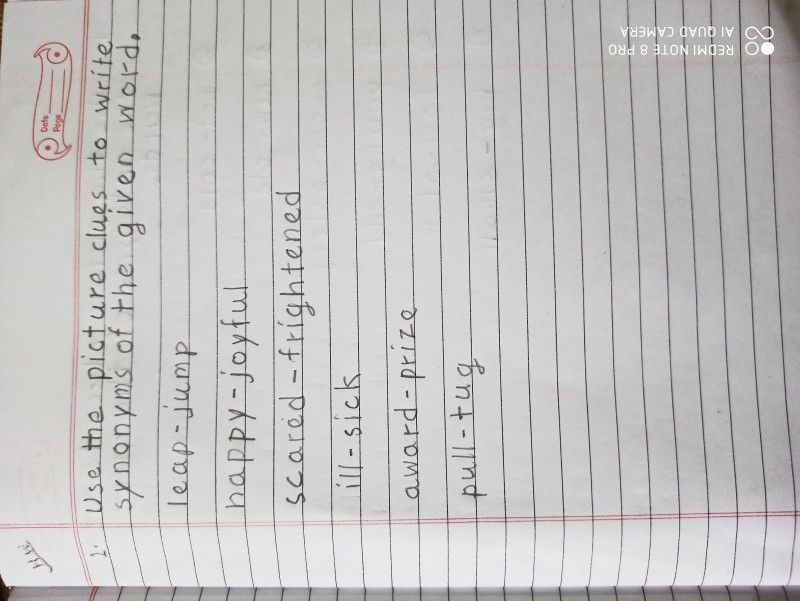 H.W.
Date
Page
1. Use the picture clues to write
synonyms of the given word.
leap-jump
happy-joyful
scared-frightened
ill-sick
award-prize
pull-tug
REDMI NOTE 8 PRO
AI QUAD CAMERA